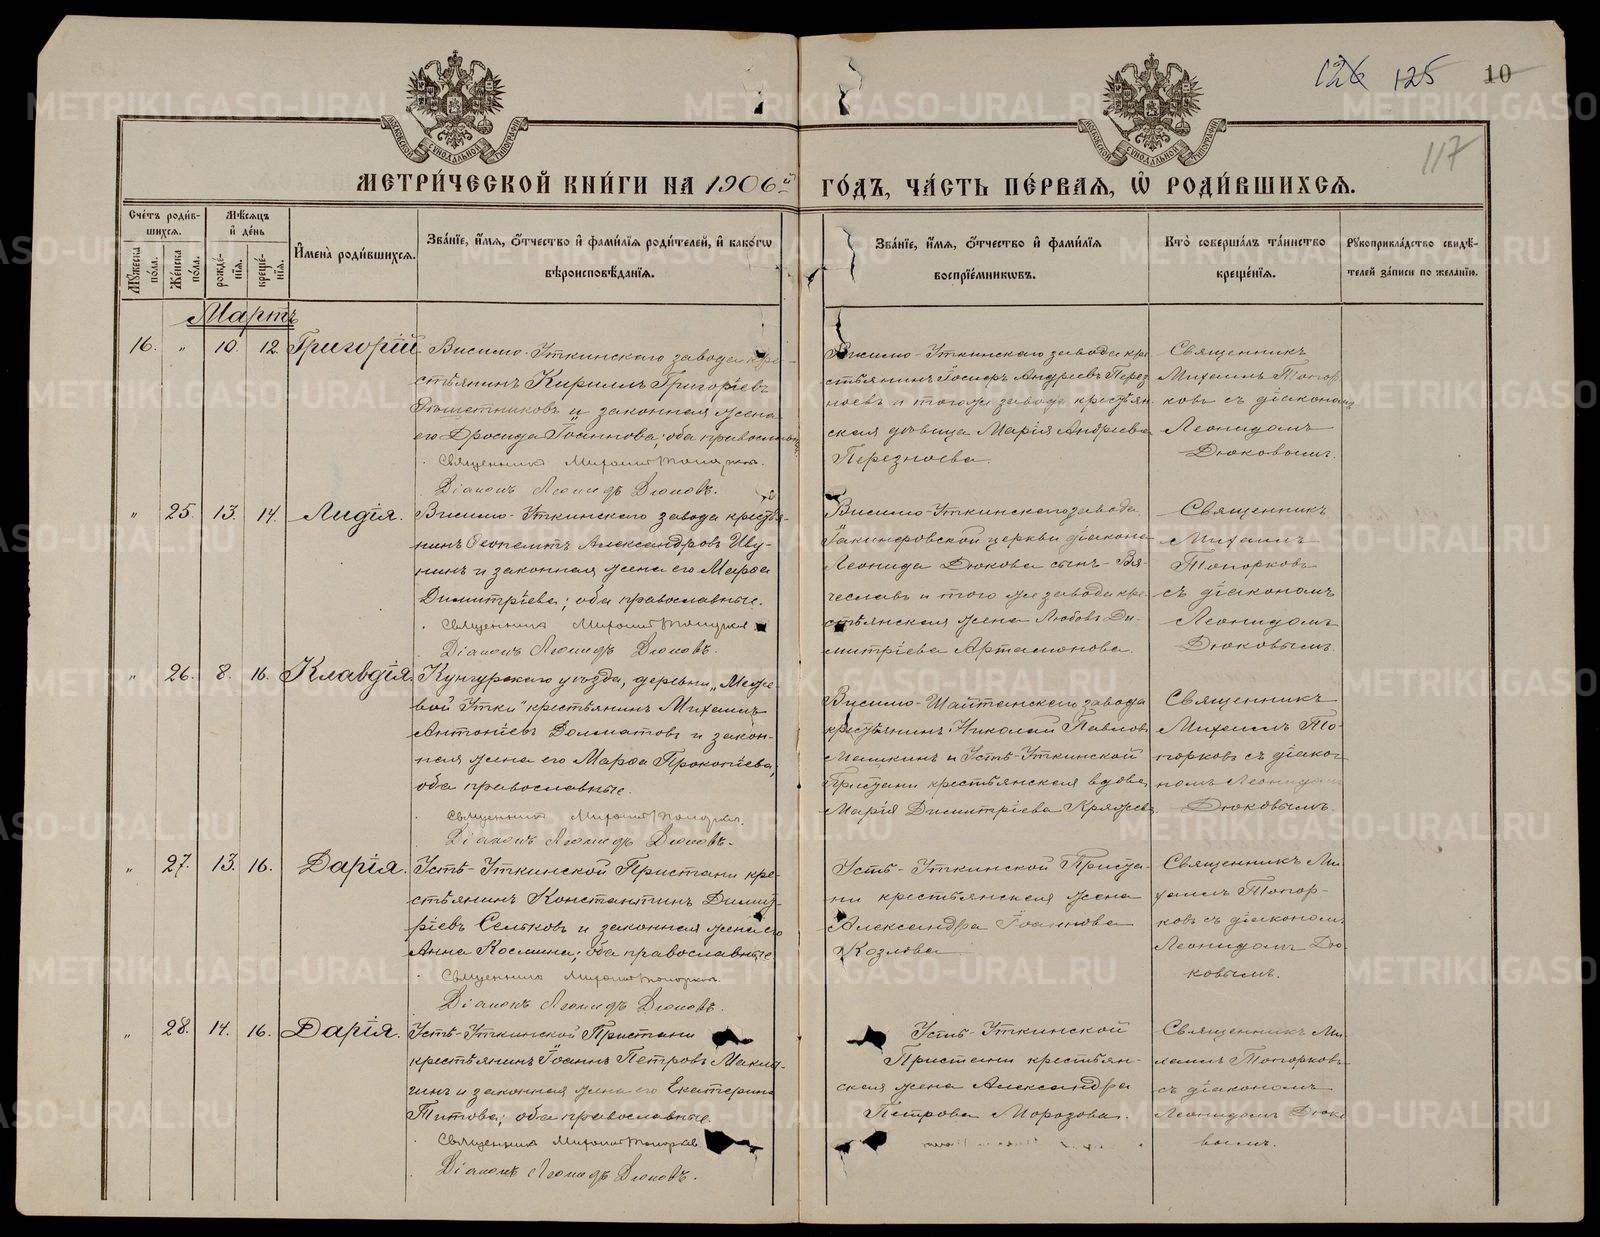 126 125 10
117
МОСКОВСКОЙ СУНОДАЛЬНОЙ ТИПОГРАФІИ
МОСКОВСКОЙ СУНОДАЛЬНОЙ ТИПОГРАФІИ
МЕТРИ́ЧЕСКОЙ КНИ́ГИ НА 1906й ГО́ДЪ, ЧА́СТЬ ПЕ́РВАѦ, Ѽ РОДИ́ВШИХСѦ.
Сче́тъ роди́в-
шихсѧ.
Мꙋ́жеска по́ла.
Же́нска по́ла.
Мѣ́сѧцъ
и҆ де́нь
рожде́-
нїѧ.
креще́-
нїѧ.
И҆мена̀ роди́вшихсѧ.
Зва́нїе, и҆́мѧ, ѻ҆́тчество и҆ фами́лїѧ роди́телей, и҆ како́гѡ
вѣроисповѣ́данїѧ.
Зва́нїе, и҆́мѧ, ѻ҆́тчество и҆ фами́лїѧ
воспрїе́мникѡвъ.
Кто̀ соверша́лъ та́инство
креще́нїѧ.
Рꙋкоприкла́дство свидѣ́-
телей за́писи по жела́нїю.
Мартъ
16. „ 10. 12. Григорій
Висимо-Уткинскаго завода кре-
стьянинъ Кириллъ Григоріевъ
и законная жена
его Дросида Іоаннова; оба православные
Священникъ Михаилъ Топорковъ.
Діаконъ Леонидъ Дюковъ.
Висимо-Уткинскаго завода кре
стьянинъ Іосифъ Андреевъ Перез
ноевъ и того же завода крестьян
ская дѣвица Марія Андреева
Перезноева.
Священникъ
Михаилъ Топор
ковъ съ діакономъ
Леонидомъ
Дюковымъ.
„ 25. 13. 14. Лидія.
Висимо-Уткинскаго завода крестья-
нинъ Ѳеопемптъ Александровъ Шу-
нинъ и законная жена его Марѳа
Димитріева; оба православные.
Священникъ Михаилъ Топорков
Діаконъ Леонидъ Дюковъ.
Висимо-Уткинскаго завода
Іакинфовской церкви діакона
Леонида Дюкова сынъ Вя-
чеславъ и того же завода кре-
стьянская жена Любовь Ди-
митріева Артамонова.
Священникъ
Михаилъ
Топорковъ
съ діакономъ
Леонидомъ
Дюковымъ.
„ 26. 8. 16. Клавдія.
Кунгурскаго уѣзда, деревни „Меже-
вой Утки" крестьянинъ Михаилъ
Антоніевъ Долматовъ и закон-
ная жена его Марѳа Прокопіева,
оба православные.
Священникъ Михаилъ Топорков.
Діаконъ Леонидъ Дюковъ.
Висимо-Шайтанскаго завода
крестьянинъ Николай Павловъ
Машкинъ и Усть-Уткинской
Пристани крестьянская вдова
Марія Димитріева Кряжева
Священникъ
Михаилъ То-
порковъ съ діако-
номъ Леонидом
Дюковымъ.
„ 27. 13. 16. Дарія.
Усть-Уткинской Пристани кре-
стьянинъ Константинъ Димит-
ріевъ Сельковъ и законная жена его
Анна Космина; оба православные
Священникъ Михаилъ Топорков.
Діаконъ Леонидъ Дюковъ.
Усть-Уткинской Приста-
ни крестьянская жена
Александра Іоаннова
Козлова
Священникъ Ми-
хаилъ Топор-
ковъ съ діакономъ
Леонидомъ Дю-
ковымъ.
„ 28. 14. 16. Дарія.
Усть-Уткинской Пристани
крестьянинъ Іоаннъ Петровъ Макла-
гинъ и законная жена его Екатерина
Титова; оба православные.
Священникъ Михаилъ Топорков
Діаконъ Леонидъ Дюковъ.
Усть-Уткинской
Пристани крестьян-
ская жена Александра
Петрова Морозова.
Священникъ Ми-
хаилъ Топорковъ
съ діакономъ
Леонидомъ Дюко
вымъ.